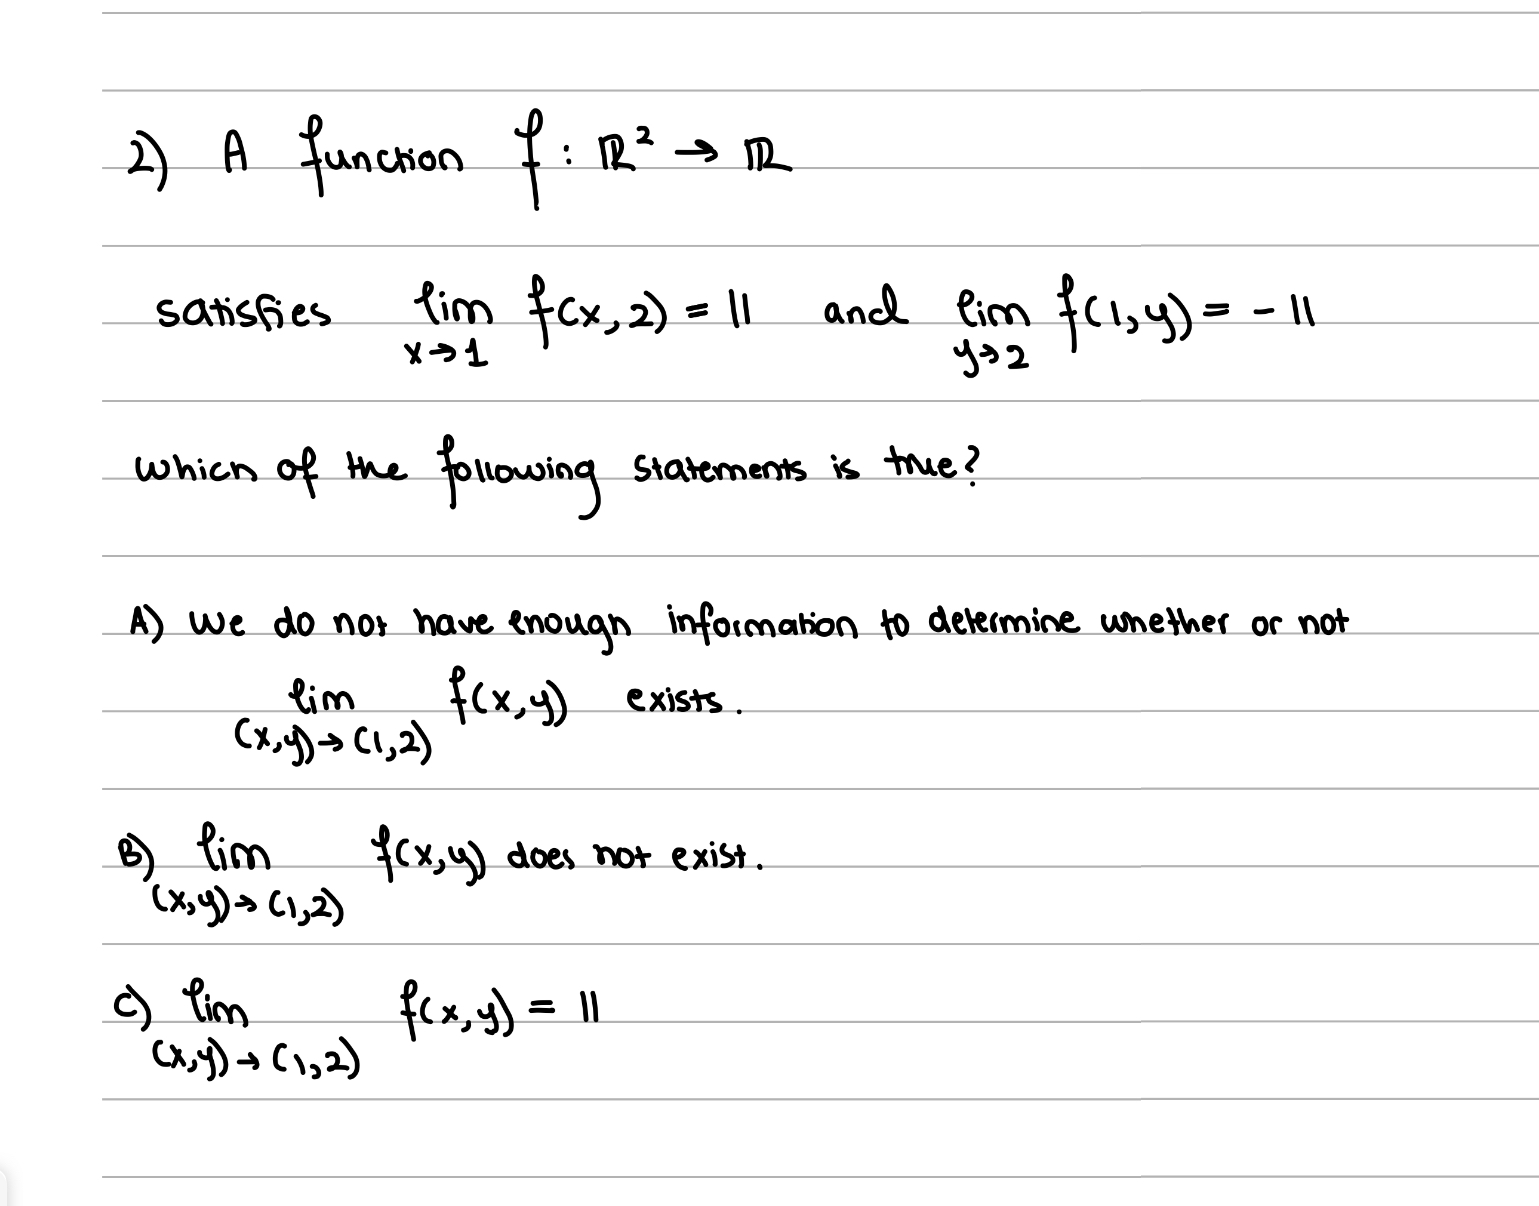 2) A function f : ℝ² → ℝ
satisfies lim f(x,2) = 11 and lim f(1,y) = - 11
x→1 y→2
which of the following statements is true?
A) we do not have enough information to determine whether or not
lim f(x,y) exists.
(x,y)→(1,2)
B) lim f(x,y) does not exist.
(x,y)→(1,2)
C) lim f(x,y) = 11
(x,y)→(1,2)